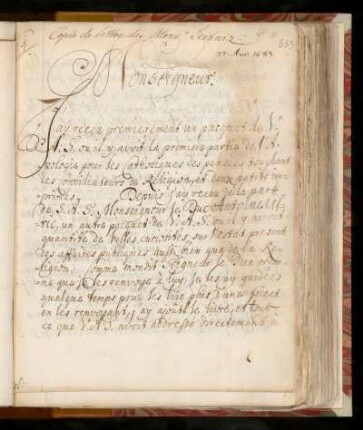 Copie de lettre de Mons.r Leibniz.
27. Avr. 1683.
Monseigneur.
J'ay receu premierement un pacquet de V.
A. S. ou il y avoit la premiere partie de l'A-
pologie pour les Catholiques des pensées touchant
les conciliateurs de Religion, et deux petits im-
primés. Depuis j'ay receu de la part
de S. A. S. Monseigneur le Duc Antoine Ul-
ric, un autre pacquet de V. A. S. ou il y avoit
quantité de belles curiosités sur l'estat present
des affaires publiques aussi bien que de la Re-
ligion, comme mondit Seigneur le Duc
ne que je les renvoye à luy, je les ay gardées
quelque temps pour les lire plus d'une fois, et
en les renvoyant, j'ay ajouté le livre, et tout
ce que V. A. S. avoit addressé directement à